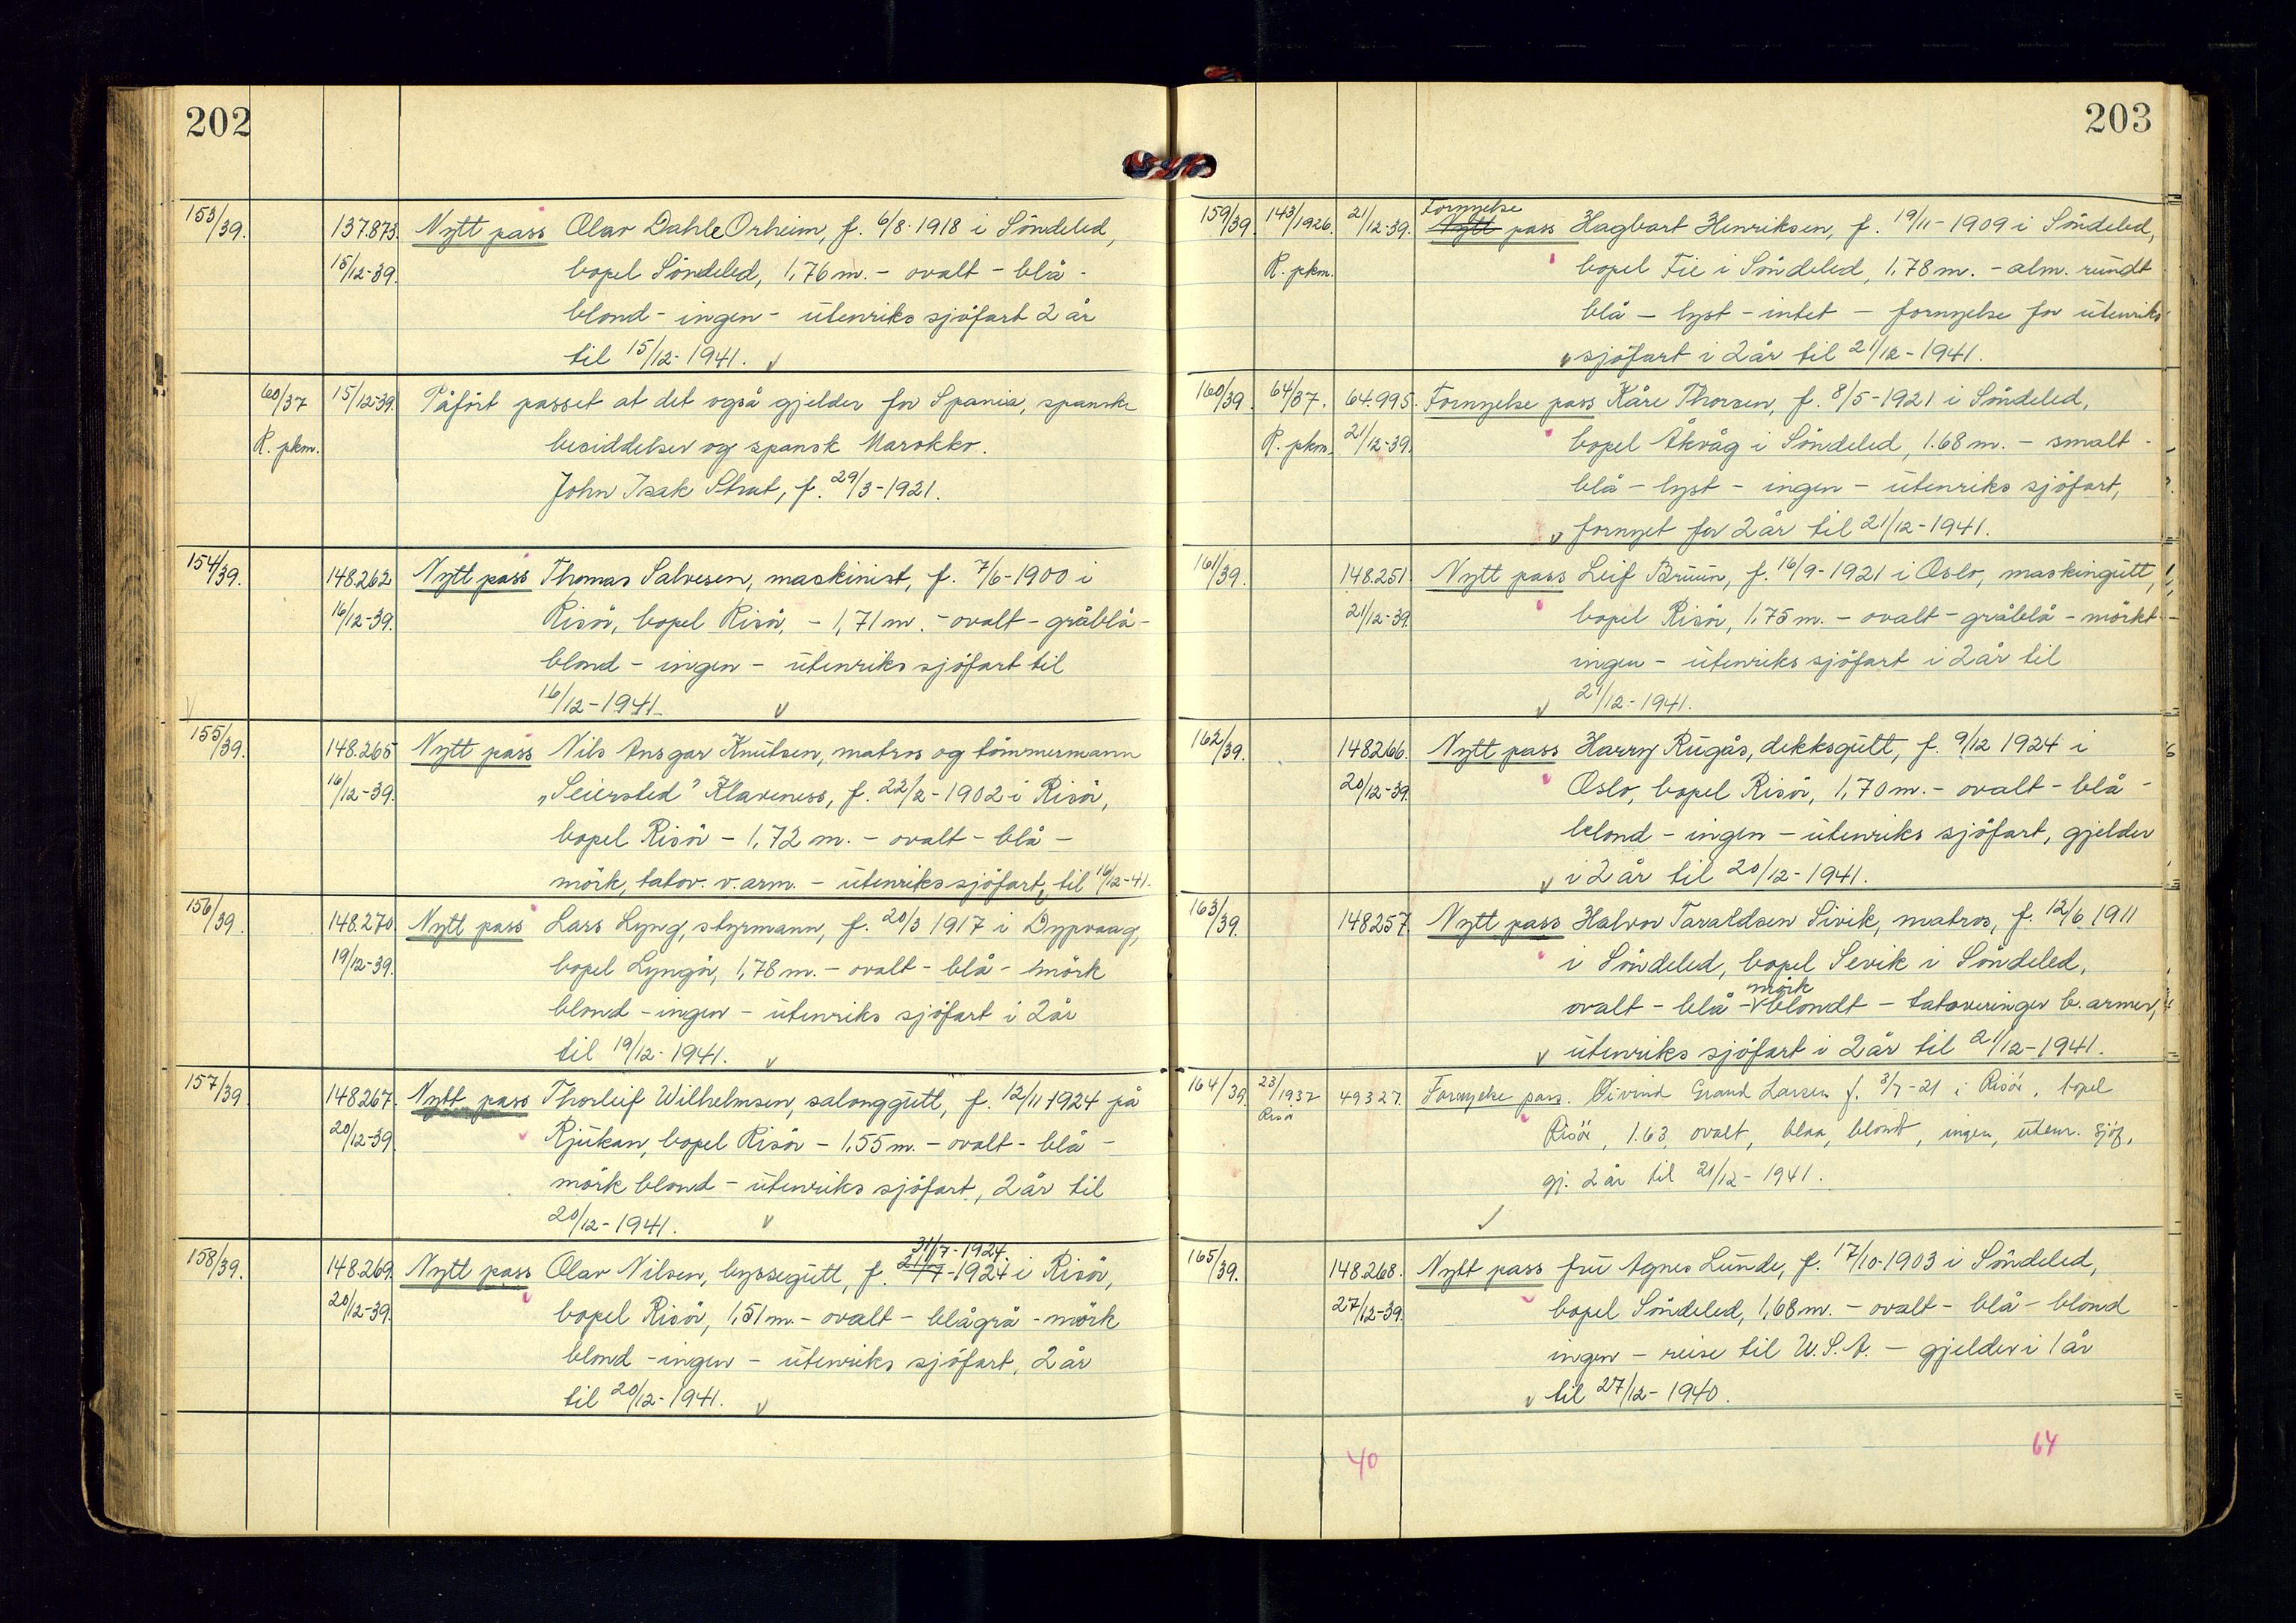 202
153/39. 137.873. Nytt pass Olav Dahle Orheim, f. 6/8-1918 i Söndeled,
15/12-39. bopel Söndeled, 1,76 m. - ovalt - blå -
blond - ingen - utenriks sjöfart 2 år
til 15/12-1941. v
60/37 15/12-39. Påfört passet at det også gjelder for Spania, spanske
R. pkm. besiddelser og spansk Marokko.
John Isak Strat, f. 29/3-1921.
154/39. 148.262 Nytt pass Thomas Salvesen, maskinist, f. 7/6-1900 i
16/12-39. Risör, bopel Risör, - 1,71 m. - ovalt - gråblå -
blond - ingen - utenriks sjöfart til
16/12-1941. v
155/39. 148.265 Nytt pass Nils Ansgar Knutsen, matros og tömmermann
16/12-39. „Seiersted" Klaveness, f. 22/2-1902 i Risör,
bopel Risör - 1,72 m. - ovalt - blå -
mörk, tatov. v. arm. - utenriks sjöfart, til 16/12-41.
156/39. 148.270 Nytt pass Lars Lyng, styrmann, f. 20/3 1917 i Dypvaag,
19/12-39. bopel Lyngör, 1,78 m. - ovalt - blå - mörk
blond - ingen - utenriks sjöfart i 2 år
til 19/12-1941. v
157/39 148.267. Nytt pass Thorleif Wilhelmsen, salonggutt, f. 12/11 1924 på
20/12-39. Rjukan, bopel Risör - 1,55 m. - ovalt - blå -
mörk blond - utenriks sjöfart, 2 år til
20/12-1941. v
31/7-1924.
158/39. 148.269. Nytt pass Olav Nilsen, byssegutt, f. 21/7-1924 i Risör,
20/12-39. bopel Risör, 1,51 m. - ovalt - blågrå - mörk
blond - ingen - utenriks sjöfart, 2 år
til 20/12-1941. v
203
Fornyelse
159/39. 143/1926. 21/12-39. Nytt pass Hagbart Henriksen, f. 19/11-1909 i Söndeled,
R. pkm. bopel Fie i Söndeled, 1,78 m. - alm. rundt
blå - lyst - intet - fornyelse for utenriks
v sjöfart i 2 år til 21/12-1941.
160/39. 64/37. 64.995. Fornyelse pass Kåre Thorsen, f. 8/5-1921 i Söndeled,
R. pkm. 21/12-39. bopel Åkvåg i Söndeled, 1.68 m. - smalt -
blå - lyst - ingen - utenriks sjöfart,
v fornyet for 2 år til 21/12-1941.
161/39. 148.251. Nytt pass Leif Bruun, f. 16/9-1921 i Oslo, maskingutt,
21/12-39. bopel Risör, 1,75 m. - ovalt - gråblå - mörkt -
ingen - utenriks sjöfart i 2 år til
v 21/12-1941.
162/39. 148266. Nytt pass Harry Rugås, dekksgutt, f. 9/12 1924 i
20/12-39. Oslo, bopel Risör, 1,70 m. - ovalt - blå -
blond - ingen - utenriks sjöfart, gjelder
v i 2 år til 20/12-1941.
163/39. 148257. Nytt pass Halvor Taraldsen Sivik, matros, f. 12/6 1911
i Söndeled, bopel Sevik i Söndeled,
mörk
ovalt - blå - v blondt - tatoveringer b. armer,
v utenriks sjöfart i 2 år til 21/12-1941.
164/39. 23/1937 49327. Fornyelse pass. Øivind Grand Larsen f. 3/7-21 i Risör, bopel
Risör Risör, 1.63, ovalt, blaa, blondt, ingen, utenr. sjöf,
gj. 2 år til 21/12-1941.
165/39. 148.268. Nytt pass fru Agnes Lunde, f. 17/10-1903 i Söndeled,
27/12-39. bopel Söndeled, 1,68 m. - ovalt - blå - blond
ingen - reise til U.S.A. - gjelder i 1 år
v til 27/12-1940.
40 64